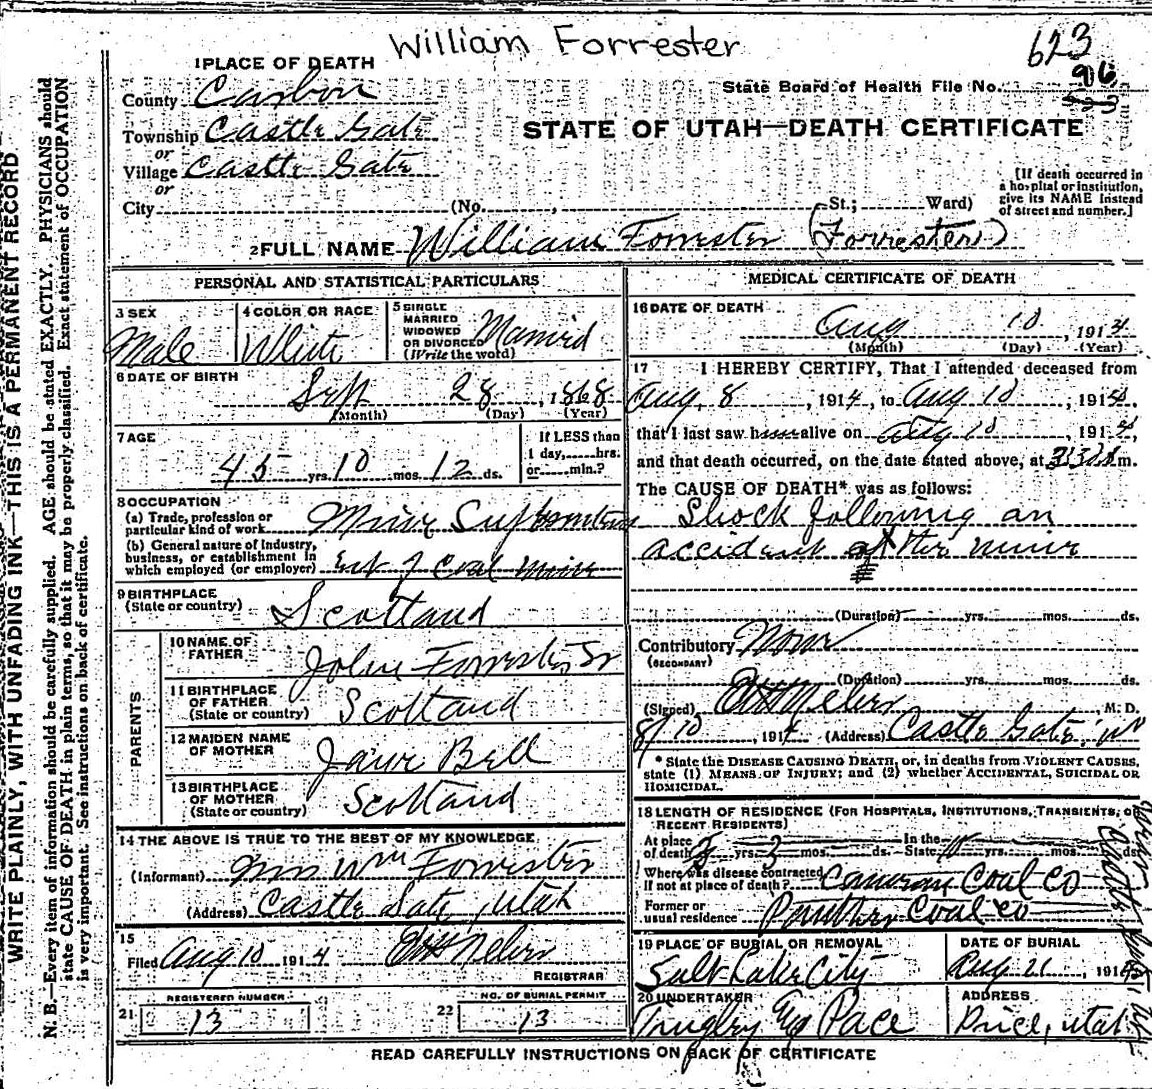 William Forrester
623
1 PLACE OF DEATH
96
State Board of Health File No.
County Carbon
Township Castle Gate
or
Village Castle Gate
or
City (No. , St.; Ward)
STATE OF UTAH—DEATH CERTIFICATE
[If death occurred in
a hospital or institution,
give its NAME instead
of street and number.]
2 FULL NAME William Forrester (Forrester)
PERSONAL AND STATISTICAL PARTICULARS
3 SEX
Male
4 COLOR OR RACE
White
5 SINGLE
MARRIED
WIDOWED
OR DIVORCED
(Write the word)
Married
6 DATE OF BIRTH
Sept 28, 1868
(Month) (Day) (Year)
7 AGE
45 yrs. 10 mos. 12 ds.
If LESS than
1 day, hrs.
or min.?
8 OCCUPATION
(a) Trade, profession or
particular kind of work
(b) General nature of industry,
business, or establishment in
which employed (or employer)
Mine
Coal mine
9 BIRTHPLACE
(State or country) Scotland
PARENTS
10 NAME OF
FATHER John Forrester Sr
11 BIRTHPLACE
OF FATHER
(State or country) Scotland
12 MAIDEN NAME
OF MOTHER Jane Bell
13 BIRTHPLACE
OF MOTHER
(State or country) Scotland
14 THE ABOVE IS TRUE TO THE BEST OF MY KNOWLEDGE
(Informant) Mrs Wm Forrester
(Address) Castle Gate, Utah
15
Filed Aug 10 1914
REGISTRAR
21 REGISTERED NUMBER
13
22 NO. OF BURIAL PERMIT
13
MEDICAL CERTIFICATE OF DEATH
16 DATE OF DEATH
Aug 10, 1914
(Month) (Day) (Year)
17 I HEREBY CERTIFY, That I attended deceased from
Aug. 8, 1914, to Aug 10, 1914,
that I last saw him alive on Aug 10, 1914,
and that death occurred, on the date stated above, at m.
The CAUSE OF DEATH* was as follows:
Shock following an
accident at the mine
(Duration) yrs. mos. ds.
Contributory None
(SECONDARY)
(Duration) yrs. mos. ds.
(Signed) M. D.
8/10, 1914 (Address) Castle Gate,
* State the DISEASE CAUSING DEATH, or, in deaths from VIOLENT CAUSES,
state (1) MEANS OF INJURY; and (2) whether ACCIDENTAL, SUICIDAL OR
HOMICIDAL.
18 LENGTH OF RESIDENCE (FOR HOSPITALS, INSTITUTIONS, TRANSIENTS, OR
RECENT RESIDENTS)
At place
of death yrs. 3 mos. ds.
In the
State yrs. mos. ds.
Where was disease contracted
if not at place of death? Cameron Coal Co
Former or
usual residence Panther Coal Co
19 PLACE OF BURIAL OR REMOVAL
Salt Lake City
DATE OF BURIAL
Aug , 191
20 UNDERTAKER
Pace
ADDRESS
Price, Utah
READ CAREFULLY INSTRUCTIONS ON BACK OF CERTIFICATE
WRITE PLAINLY, WITH UNFADING INK—THIS IS A PERMANENT RECORD
N. B.—Every item of information should be carefully supplied. AGE should be stated EXACTLY. PHYSICIANS should
state CAUSE OF DEATH in plain terms, so that it may be properly classified. Exact statement of OCCUPATION
is very important. See instructions on back of certificate.